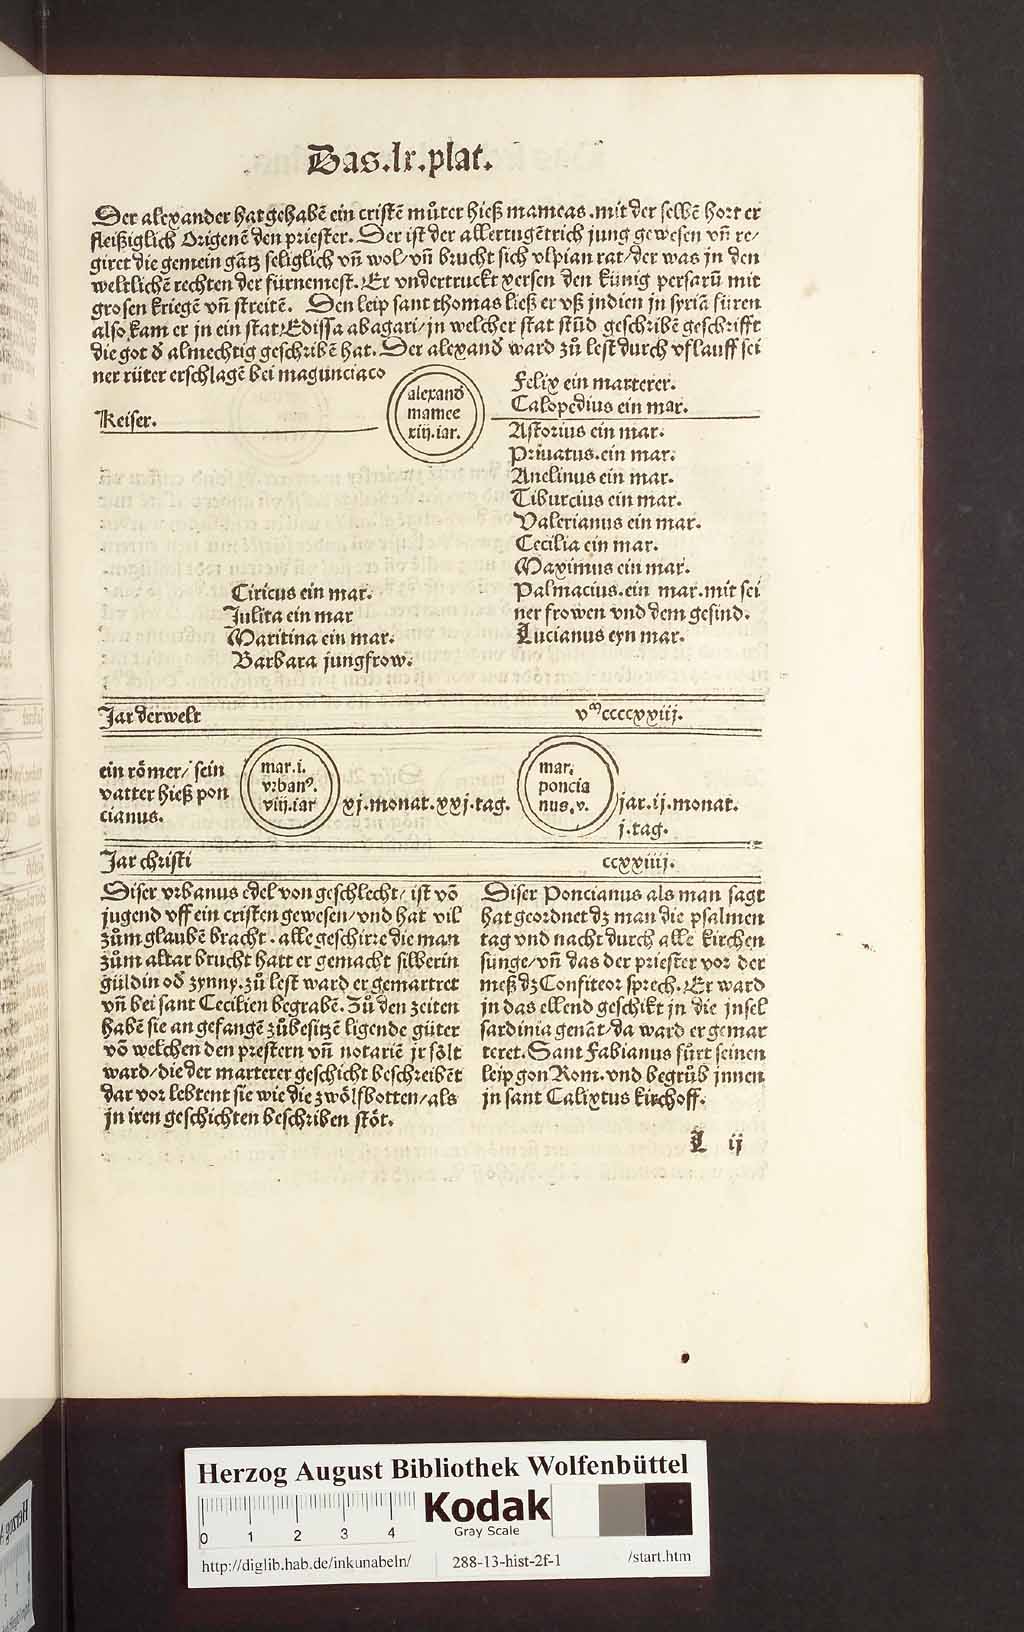 Das.lx.plat.
Der alexander hat gehabē ein cristē můter hieß mameas.mit der selbē hort er
fleißiglich Origenē den priester. Der ist der allertugētrich jung gewesen vñ re⸗
giret die gemein gātz seliglich vñ wol/vñ brucht sich vlpian rat/der was jn den
weltlichē rechten der fürnemest. Er vndertruckt xersen den künig persarū mit
grosen kriegē vñ streitē. Den leip sant thomas ließ er vß jndien jn syriā füren
also kam er jn ein stat Edissa abagari/jn welcher stat stūd geschribē geschrifft
die got d̄ almechtig geschribē hat. Der alexand̄ ward zů lest durch vflauff sei
ner rüter erschlagē bei magunciaco
Keiser.
alexand̄
mamee
xiij.iar.
Felix ein marterer.
Calopedius ein mar.
Astorius ein mar.
Priuatus.ein mar.
Anelinus ein mar.
Tiburcius ein mar.
Valerianus ein mar.
Cecilia ein mar.
Maximus ein mar.
Palmacius.ein mar.mit sei
ner frowen vnd dem gesind.
Lucianus eyn mar.
Ciricus ein mar.
Julita ein mar
Maritina ein mar.
Barbara jungfrow.
Jar der welt vᵐccccxxiij.
ein römer/sein
vatter hieß pon
cianus.
mar.i.
vrban⁹.
viij.iar
xj.monat.xxj.tag.
mar.
poncia
nus.v.
jar.ij.monat.
j.tag.
Jar christi ccxxiiij.
Diser vrbanus edel von geschlecht/ist vō
jugend vff ein cristen gewesen/vnd hat vil
zům glaubē bracht.alle geschirre die man
zům altar brucht hatt er gemacht silberin
güldin od̄ zynny.zů lest ward er gemartret
vñ bei sant Cecilien begrabē. Zů den zeiten
habē sie an gefangē zůbesitzē ligende güter
vō welchen den prestern vñ notariē jr sölt
ward/die der marterer geschicht beschreibēt
dar vor lebtent sie wie die zwölfbotten/als
jn iren geschichten beschriben stöt.
Diser Poncianus als man sagt
hat geordnet dz man die psalmen
tag vnd nacht durch alle kirchen
sunge/vñ das der priester vor der
meß dz Confiteor sprech. Er ward
jn das ellend geschikt jn die jnsel
sardinia genāt/da ward er gemar
teret. Sant Fabianus fůrt seinen
leip gon Rom.vnd begrůb jnnen
jn sant Calixtus kirchoff.
L ij
Herzog August Bibliothek Wolfenbüttel
0 1 2 3 4
Kodak
Gray Scale
http://diglib.hab.de/inkunabeln/ 288-13-hist-2f-1 /start.htm